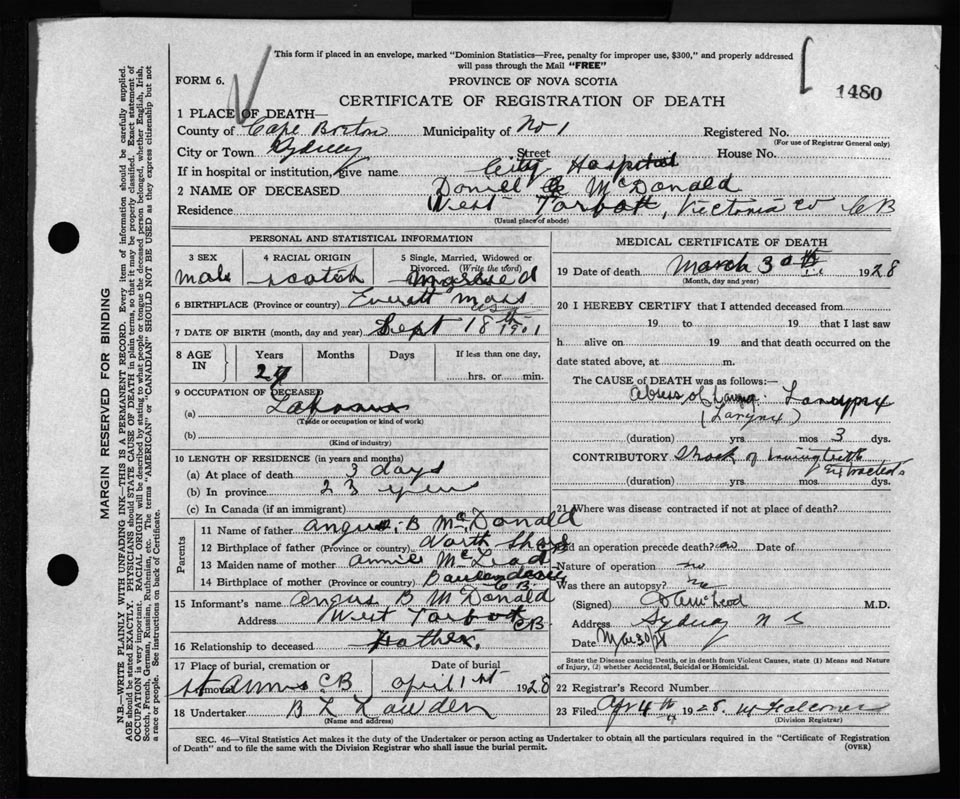 This form if placed in an envelope, marked "Dominion Statistics—Free, penalty for improper use, $300," and properly addressed
will pass through the Mail "FREE"
FORM 6.
PROVINCE OF NOVA SCOTIA
1480
CERTIFICATE OF REGISTRATION OF DEATH
1 PLACE OF DEATH—
County of Cape Breton Municipality of No 1 Registered No.
(For use of Registrar General only)
City or Town Sydney Street House No.
If in hospital or institution, give name City Hospital
2 NAME OF DECEASED McDonald
Residence West Tarbott, Victoria Co CB
(Usual place of abode)
PERSONAL AND STATISTICAL INFORMATION
3 SEX 4 RACIAL ORIGIN 5 Single, Married, Widowed or
Divorced. (Write the word)
male scotch Married
6 BIRTHPLACE (Province or country) Everett Mass
7 DATE OF BIRTH (month, day and year) Sept 18th 1901
8 AGE IN Years Months Days If less than one day,
27 hrs. or min.
9 OCCUPATION OF DECEASED
(a)
(Trade or occupation or kind of work)
(b)
(Kind of industry)
10 LENGTH OF RESIDENCE (in years and months)
(a) At place of death 3 days
(b) In province 23 years
(c) In Canada (if an immigrant)
Parents
11 Name of father Angus B McDonald
12 Birthplace of father (Province or country) North Shore
13 Maiden name of mother Annie McLeod
14 Birthplace of mother (Province or country) C B.
15 Informant's name Angus B McDonald
Address West Tarbott CB
16 Relationship to deceased Father.
17 Place of burial, cremation or removal Date of burial
St Anns CB April 1st 1928
18 Undertaker B L
(Name and address)
MEDICAL CERTIFICATE OF DEATH
19 Date of death March 30th 1928
(Month, day and year)
20 I HEREBY CERTIFY that I attended deceased from
19 to 19 that I last saw
h alive on 19 and that death occurred on the
date stated above, at m.
The CAUSE OF DEATH was as follows:—
Abcess of Larynx
(Larynx)
(duration) yrs. mos 3 dys.
CONTRIBUTORY Shock of having teeth
extracted
(duration) yrs. mos. dys.
21 Where was disease contracted if not at place of death?
Did an operation precede death? no Date of
Nature of operation no
Was there an autopsy? no
(Signed) McLeod M.D.
Address Sydney N S
Date Mar 30/28
State the Disease causing Death, or in death from Violent Causes, state (1) Means and Nature
of Injury, (2) whether Accidental, Suicidal or Homicidal.
22 Registrar's Record Number
23 Filed Apr 4th 1928. W Falconer
(Division Registrar)
SEC. 46—Vital Statistics Act makes it the duty of the Undertaker or person acting as Undertaker to obtain all the particulars required in the "Certificate of Registration
of Death" and to file the same with the Division Registrar who shall issue the burial permit.
(OVER)
MARGIN RESERVED FOR BINDING
N.B.—WRITE PLAINLY WITH UNFADING INK—THIS IS A PERMANENT RECORD. Every item of information should be carefully supplied.
AGE should be stated EXACTLY. PHYSICIANS should STATE CAUSE OF DEATH in plain terms, so that it may be properly classified. Exact statement of
OCCUPATION is very important. RACIAL ORIGIN will be described by stating to what people or tongue the deceased person belonged, whether English, Irish,
Scotch, French, German, Russian, Ruthenian, etc. The terms "AMERICAN" or "CANADIAN" SHOULD NOT BE USED as they express citizenship but not
a race or people. See instructions on back of Certificate.